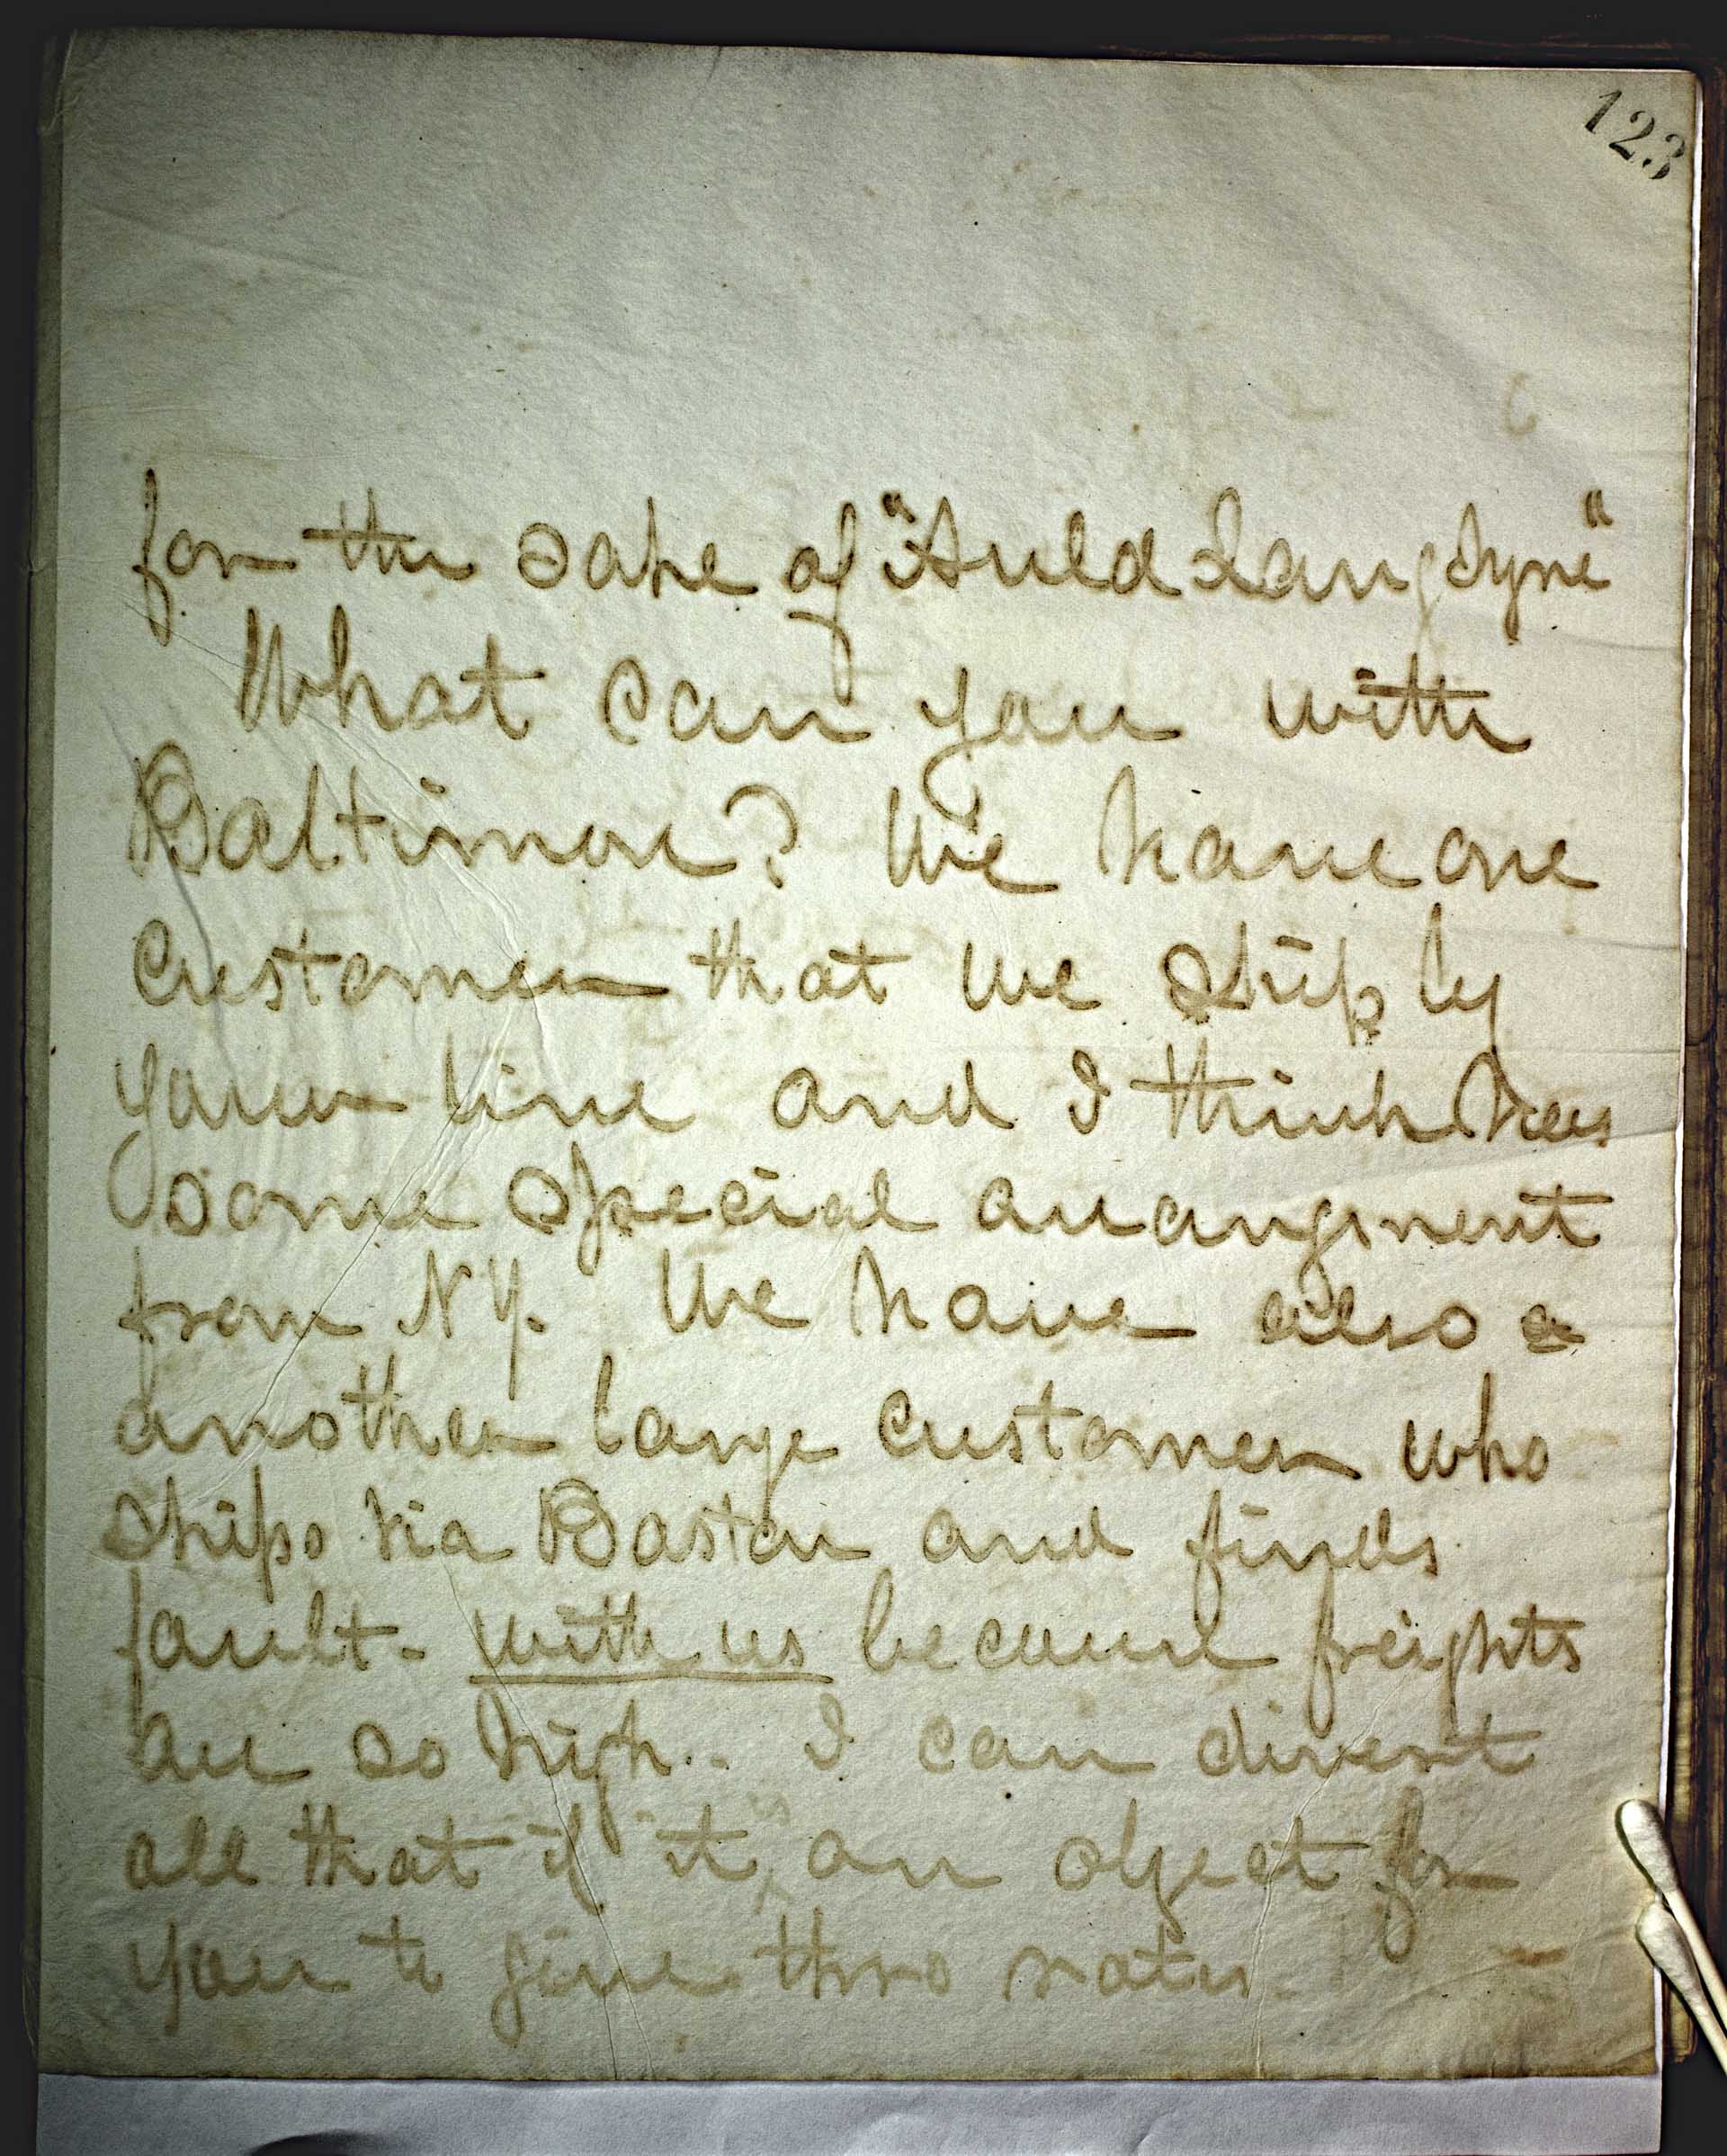 123
for the sake of "Auld Lang Syne"
What can you with
Baltimore? We have one
customer that we ship by
your line and I think has
some special arrangment
from NY. We have also a
another large customer who
ships via Boston and finds
fault - with us because freights
are so high. I can divert
all that if it is an object for
you to give thro rates.